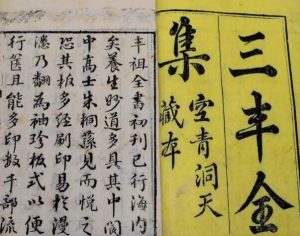 三丰全
集
空青洞天
藏本
丰祖全書初刊已行海内
矣養生妙道多具其中閬
中高士朱桐蓀見而悦之
恐其板多經刷印易於漫
漶乃翻為袖珍板式以便
行篋且能多印數千部流